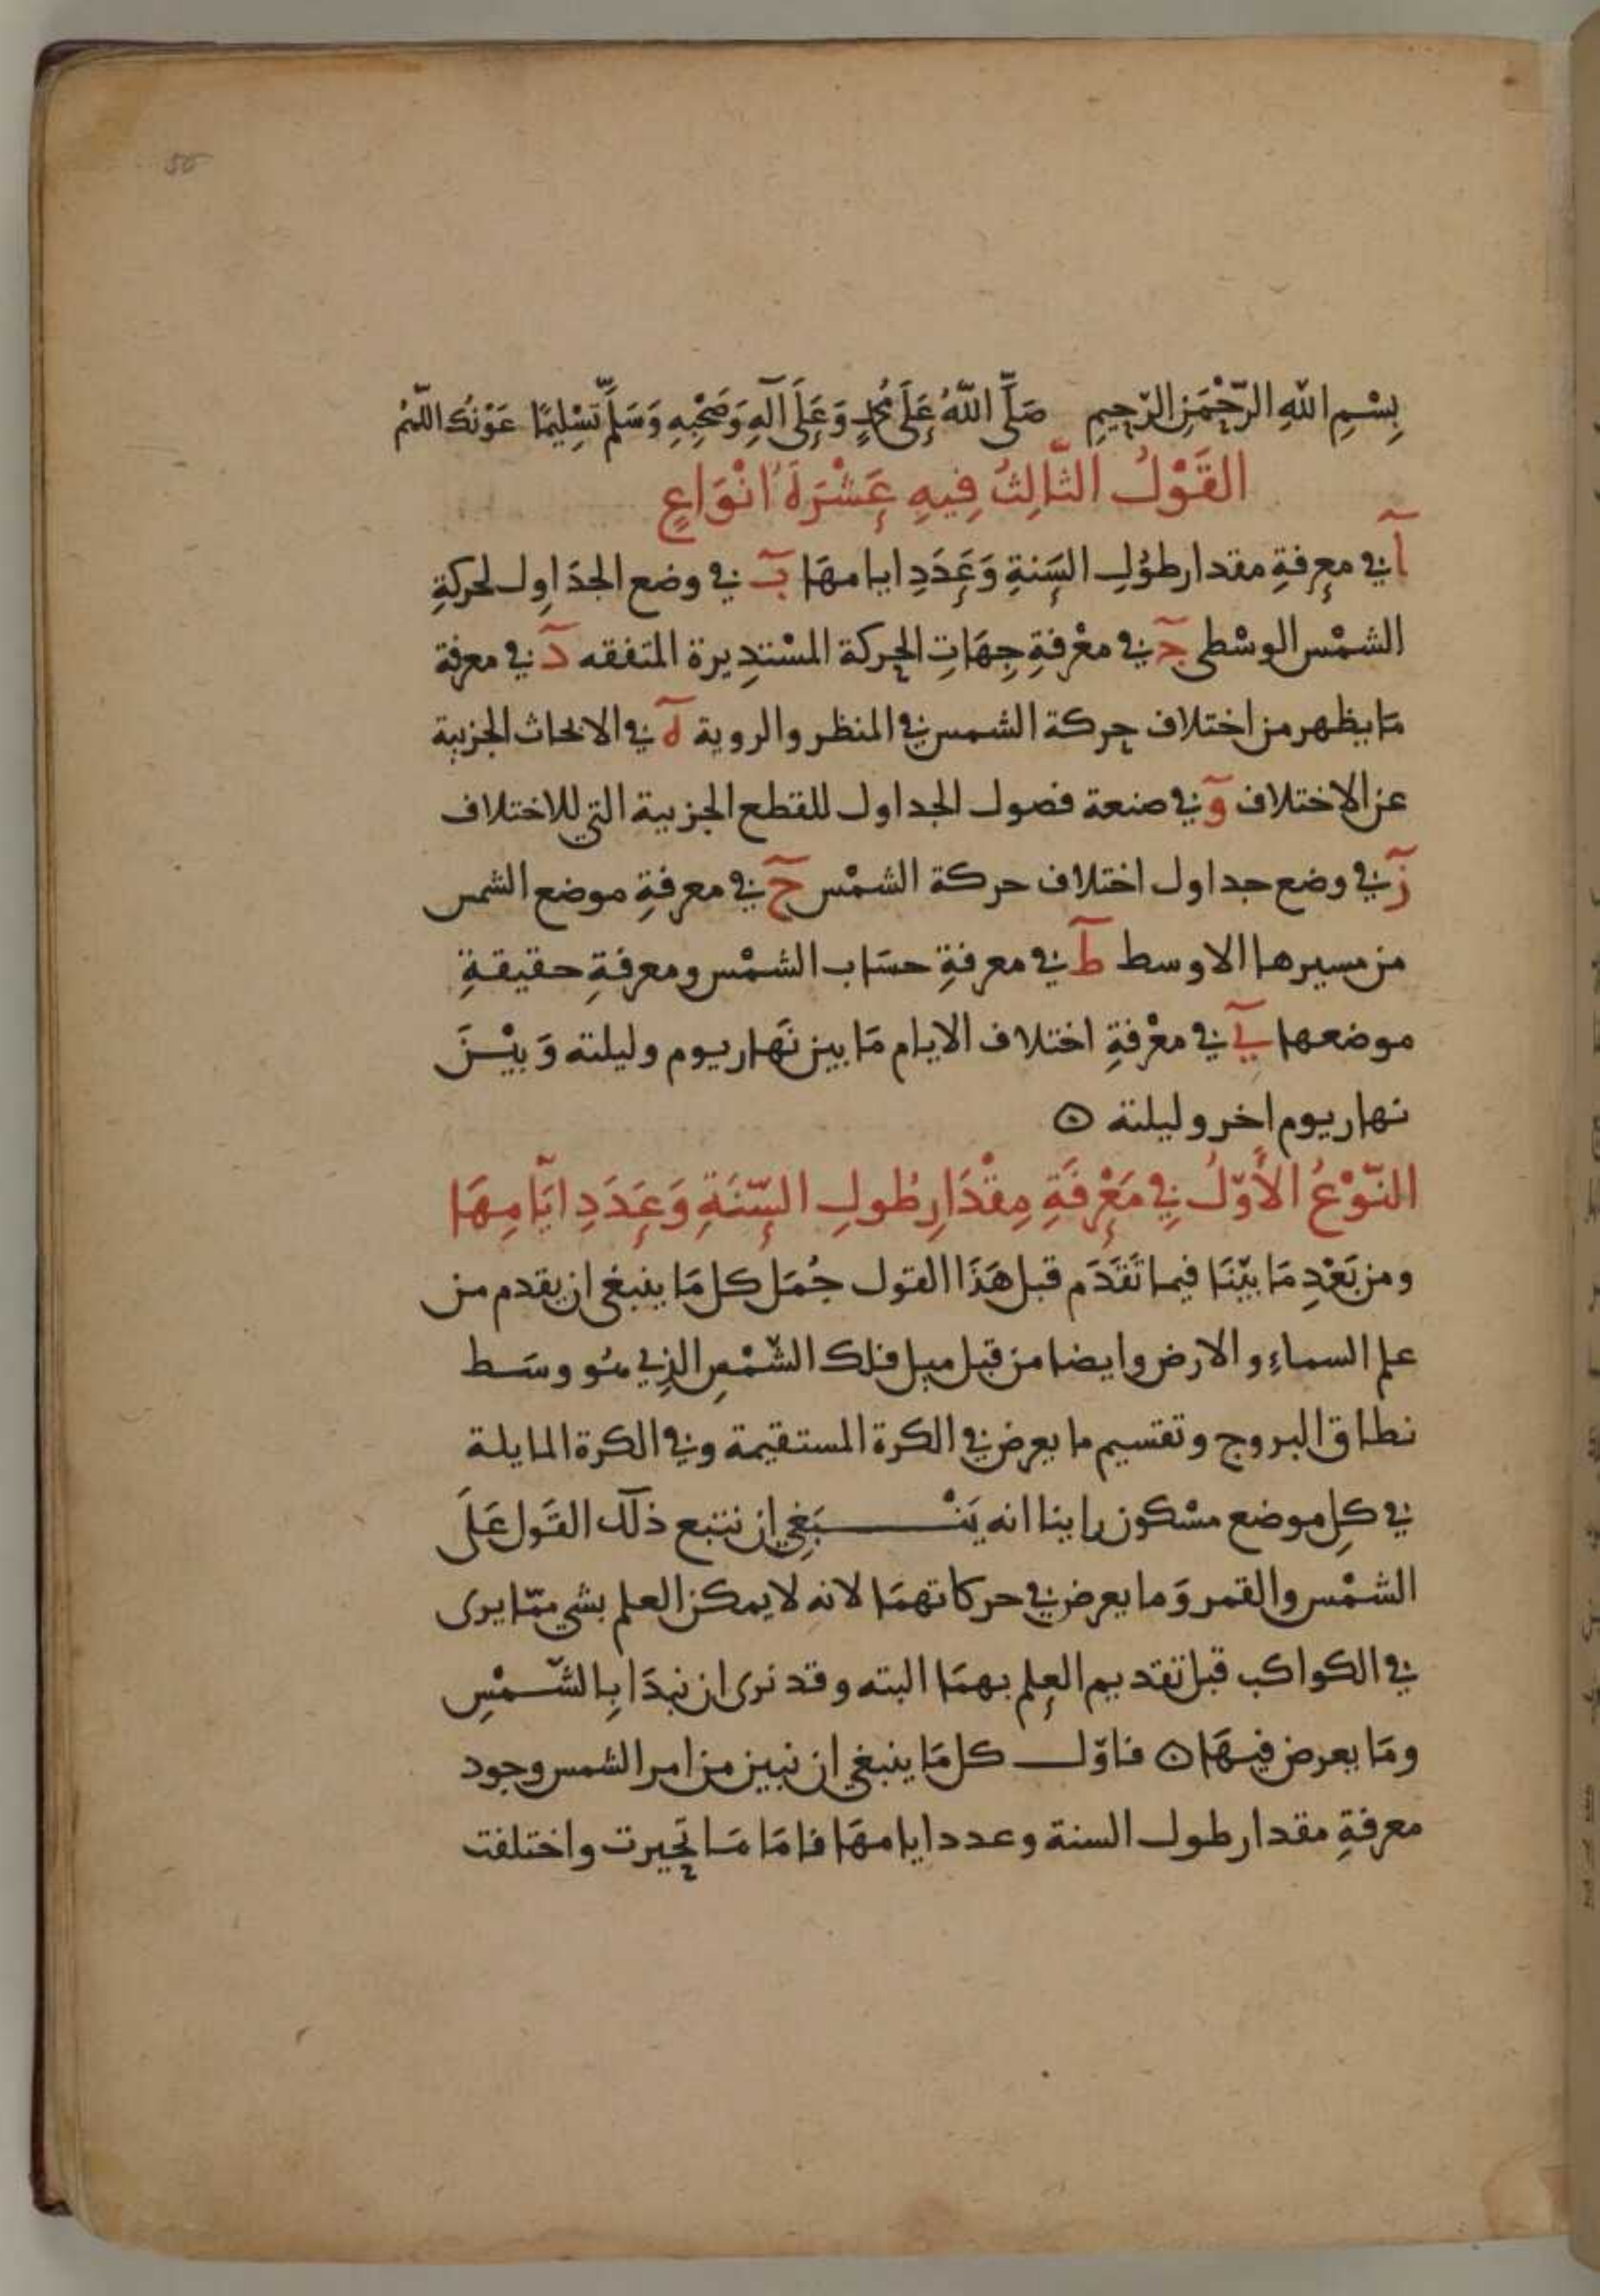 55
بِسْمِ اللّٰهِ الرَّحْمَنِ الرَّحِيمِ صَلَّى اللّٰهُ عَلَى مُحَمَّدٍ وَعَلَى آلِهِ وَصَحْبِهِ وَسَلَّمَ تَسْلِيمًا عَوْنُكَ اللّٰهُمَّ
القَوْلُ الثَّالِثُ فِيهِ عَشْرَةُ انْوَاعٍ
آ في معرفةِ مقدار طوُلِ السَنةِ وَعَدَدِ ايامهَا بَ في وضع الجدَاول لحركةِ
الشمْس الوسْطى جَ في معْرفةِ جِهَاتِ الحركة المسْتدِيرة المتفقه دَ في معرفة
مَا يظهر من اختلاف حركة الشمس في المنظر والروية هَ في الابحاث الجزيية
عن الاختلاف وَ في صنعة فصول الجداول للقطع الجزيية التي للاختلاف
زَ في وضع جداول اختلاف حركة الشمْس حَ في معرفةِ موضع الشمس
من مسيرها الاوسط طَ في معرفةِ حسَاب الشمْس ومعرفةِ حقيقةِ
موضعها يَ في معْرفةِ اختلاف الايام مَا بين نَهَار يوم وليلته وَبيْنَ
نهار يوم اخر وليلته ۞
النَّوْعُ الأَوّلُ فِي مَعْرِفَةِ مِقْدَارِ طُولِ السَّنَةِ وَعَدَدِ ايَّامِهَا
ومن بَعْدِ مَا بيّنَا فيما تَقَدَم قبل هَذَا القول جُمَل كل مَا ينبغي ان يقدم من
علم السماءِ والارض وايضا من قبل ميل فلك الشّمْسِ الذِي هُو وسَط
نطاق البروج وتقسيم ما يعرض في الكرة المستقيمة وفي الكرة المايلة
في كلِ موضع مسْكون راينا انه يَنْبَغِي ان نتبع ذلك القَول عَلَى
الشمْس والقمر وَما يعرض في حركاتهمَا لانه لا يمكن العلم بشي ممّا يرى
في الكواكب قبل تقديم العلم بهمَا البته وقد نرى ان نبدَا بِالشّمْسِ
ومَا يعرض فيهَا ۞ فاوّل كل مَا ينبغي ان نبين من امر الشمس وجود
معرفةِ مقدار طول السنة وعدد ايامهَا فامَا مَا تحيرت واختلفت